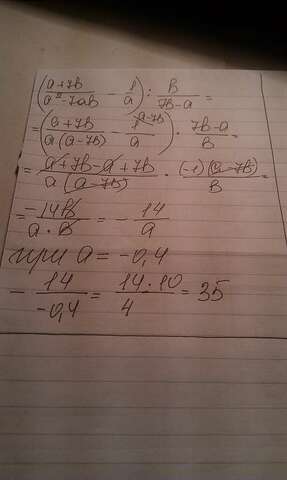 ((a+7b)/(a²-7ab) - 1/a) : B/(7b-a) =
= ((a+7b)/(a(a-7b)) - 1^(a-7b)/a) · (7b-a)/B =
= (a+7b-a+7b)/(a(a-7b)) · ((-1)(a-7b))/B =
= (-14B)/(a·B) = - 14/a
при a = -0,4
- 14/(-0,4) = (14·10)/4 = 35